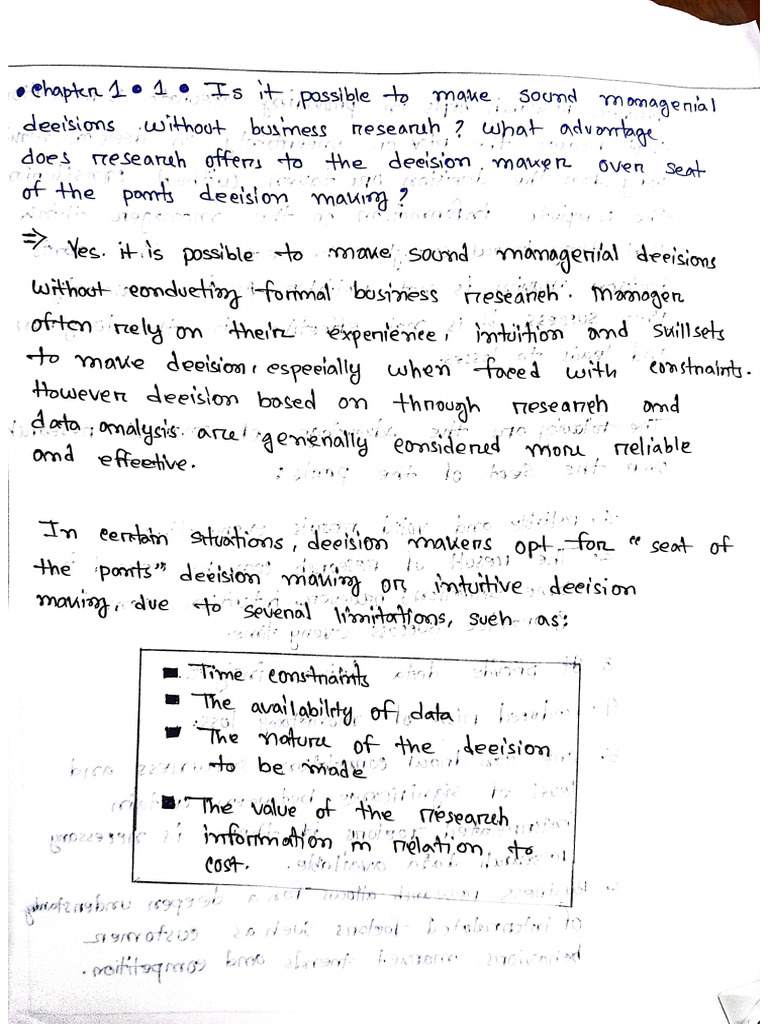 • Chapter 1 • 1 • Is it possible to make sound managerial
decisions without business research? What advantage
does research offers to the decision maker over seat
of the pants decision making?
⇒ Yes. it is possible to make sound managerial decisions
without conducting formal business research. Manager
often rely on their experience, intuition and skillsets
to make decision, especially when faced with constraints.
However decision based on through research and
data analysis are generally considered more reliable
and effective.
In certain situations, decision makers opt for "seat of
the pants" decision making or intuitive decision
making, due to several limitations, such as:
▪ Time constraints
▪ The availability of data
▪ The nature of the decision
to be made
▪ The value of the research
information in relation to
cost.